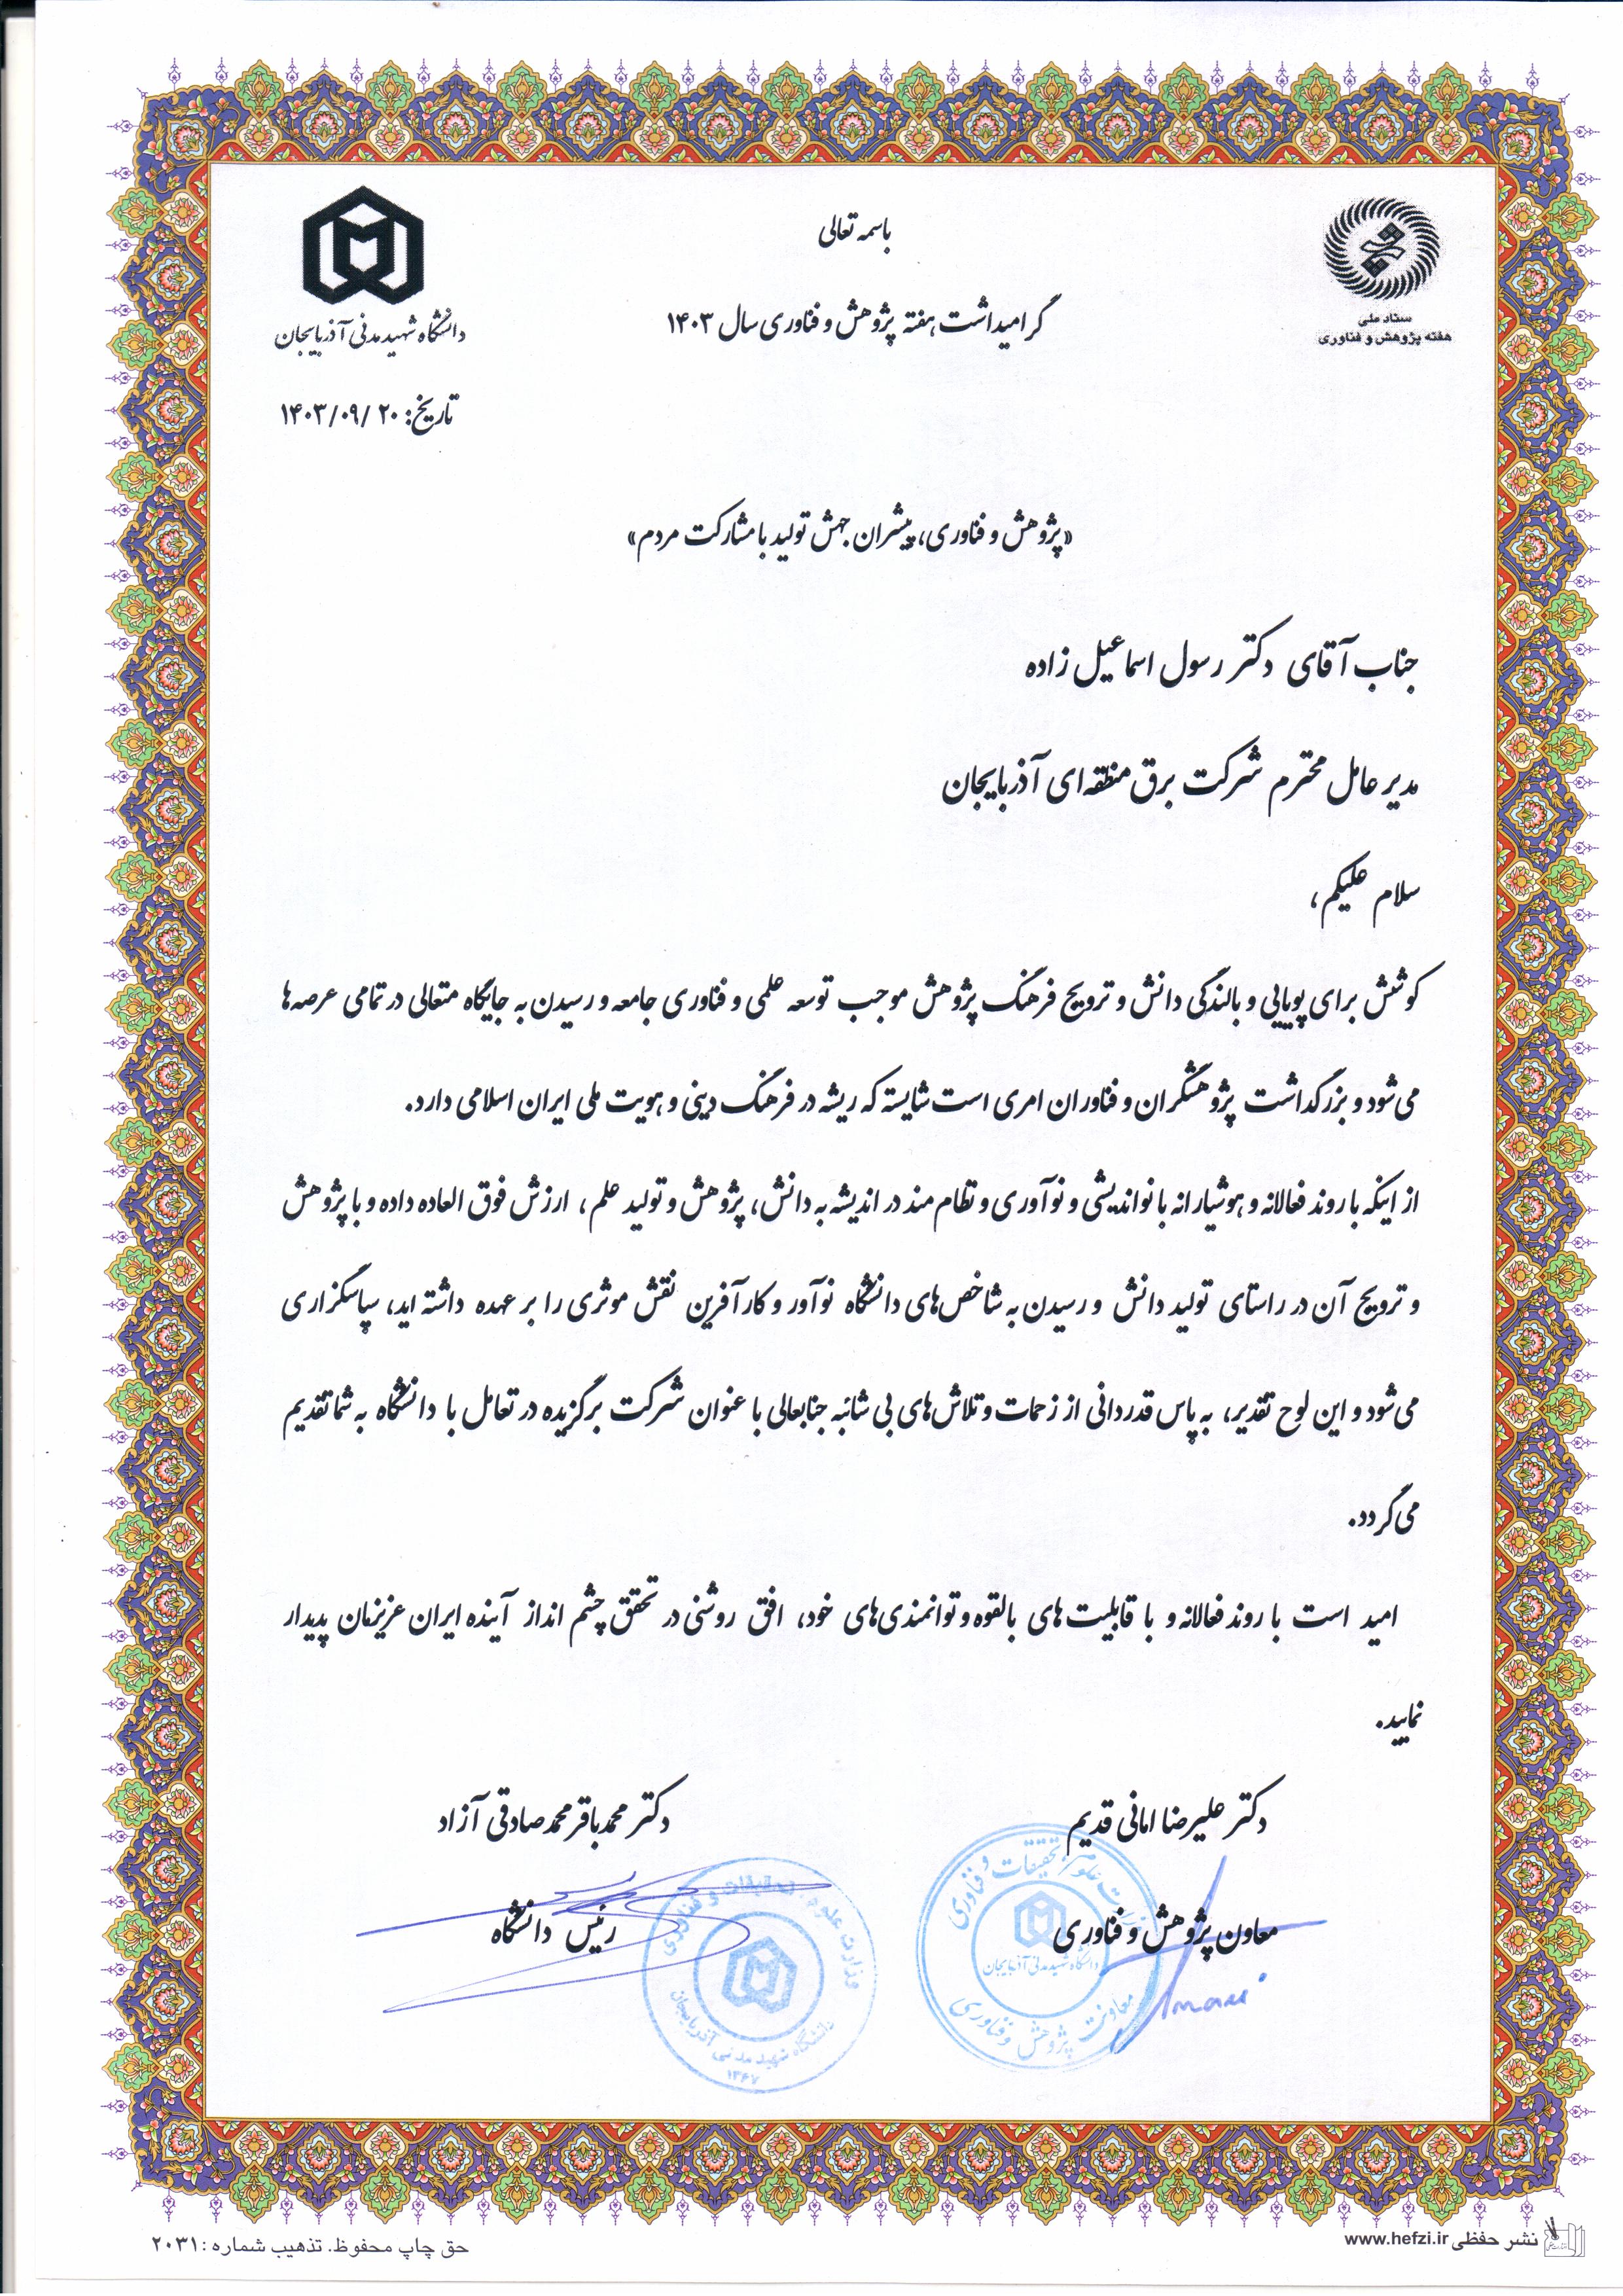 باسمه تعالی
گرامیداشت هفته پژوهش و فناوری سال ۱۴۰۳
ستاد ملی
هفته پژوهش و فناوری
دانشگاه شهید مدنی آذربایجان
تاریخ: ۱۴۰۳/۰۹/۲۰
«پژوهش و فناوری، پیشران جهش تولید با مشارکت مردم»
جناب آقای دکتر رسول اسماعیل زاده
مدیر عامل محترم شرکت برق منطقه‌ای آذربایجان
سلام علیکم،
کوشش برای پویایی و بالندگی دانش و ترویج فرهنگ پژوهش موجب توسعه علمی و فناوری جامعه و رسیدن به جایگاه متعالی در تمامی عرصه‌ها
می‌شود و بزرگداشت پژوهشگران و فناوران امری است شایسته که ریشه در فرهنگ دینی و هویت ملی ایران اسلامی دارد.
از اینکه با روند فعالانه و هوشیارانه با نواندیشی و نوآوری و نظام مند در اندیشه به دانش، پژوهش و تولید علم، ارزش فوق العاده داده و با پژوهش
و ترویج آن در راستای تولید دانش و رسیدن به شاخص‌های دانشگاه نوآور و کارآفرین نقش موثری را بر عهده داشته اید، سپاسگزاری
می‌شود و این لوح تقدیر، به پاس قدردانی از زحمات و تلاش‌های بی شائبه جنابعالی با عنوان شرکت برگزیده در تعامل با دانشگاه به شما تقدیم
می‌گردد.
امید است با روند فعالانه و با قابلیت های بالقوه و توانمندی‌های خود، افق روشنی در تحقق چشم انداز آینده ایران عزیزمان پدیدار
نمایید.
دکتر علیرضا امانی قدیم
معاون پژوهش و فناوری
دکتر محمدباقر محمدصادقی آزاد
رئیس دانشگاه
وزارت علوم، تحقیقات و فناوری
دانشگاه شهید مدنی آذربایجان
معاونت پژوهش و فناوری
Amani
وزارت علوم، تحقیقات و فناوری
دانشگاه شهید مدنی آذربایجان
۱۳۶۷
نشر حفظی www.hefzi.ir
حق چاپ محفوظ. تذهیب شماره: ۲۰۳۱